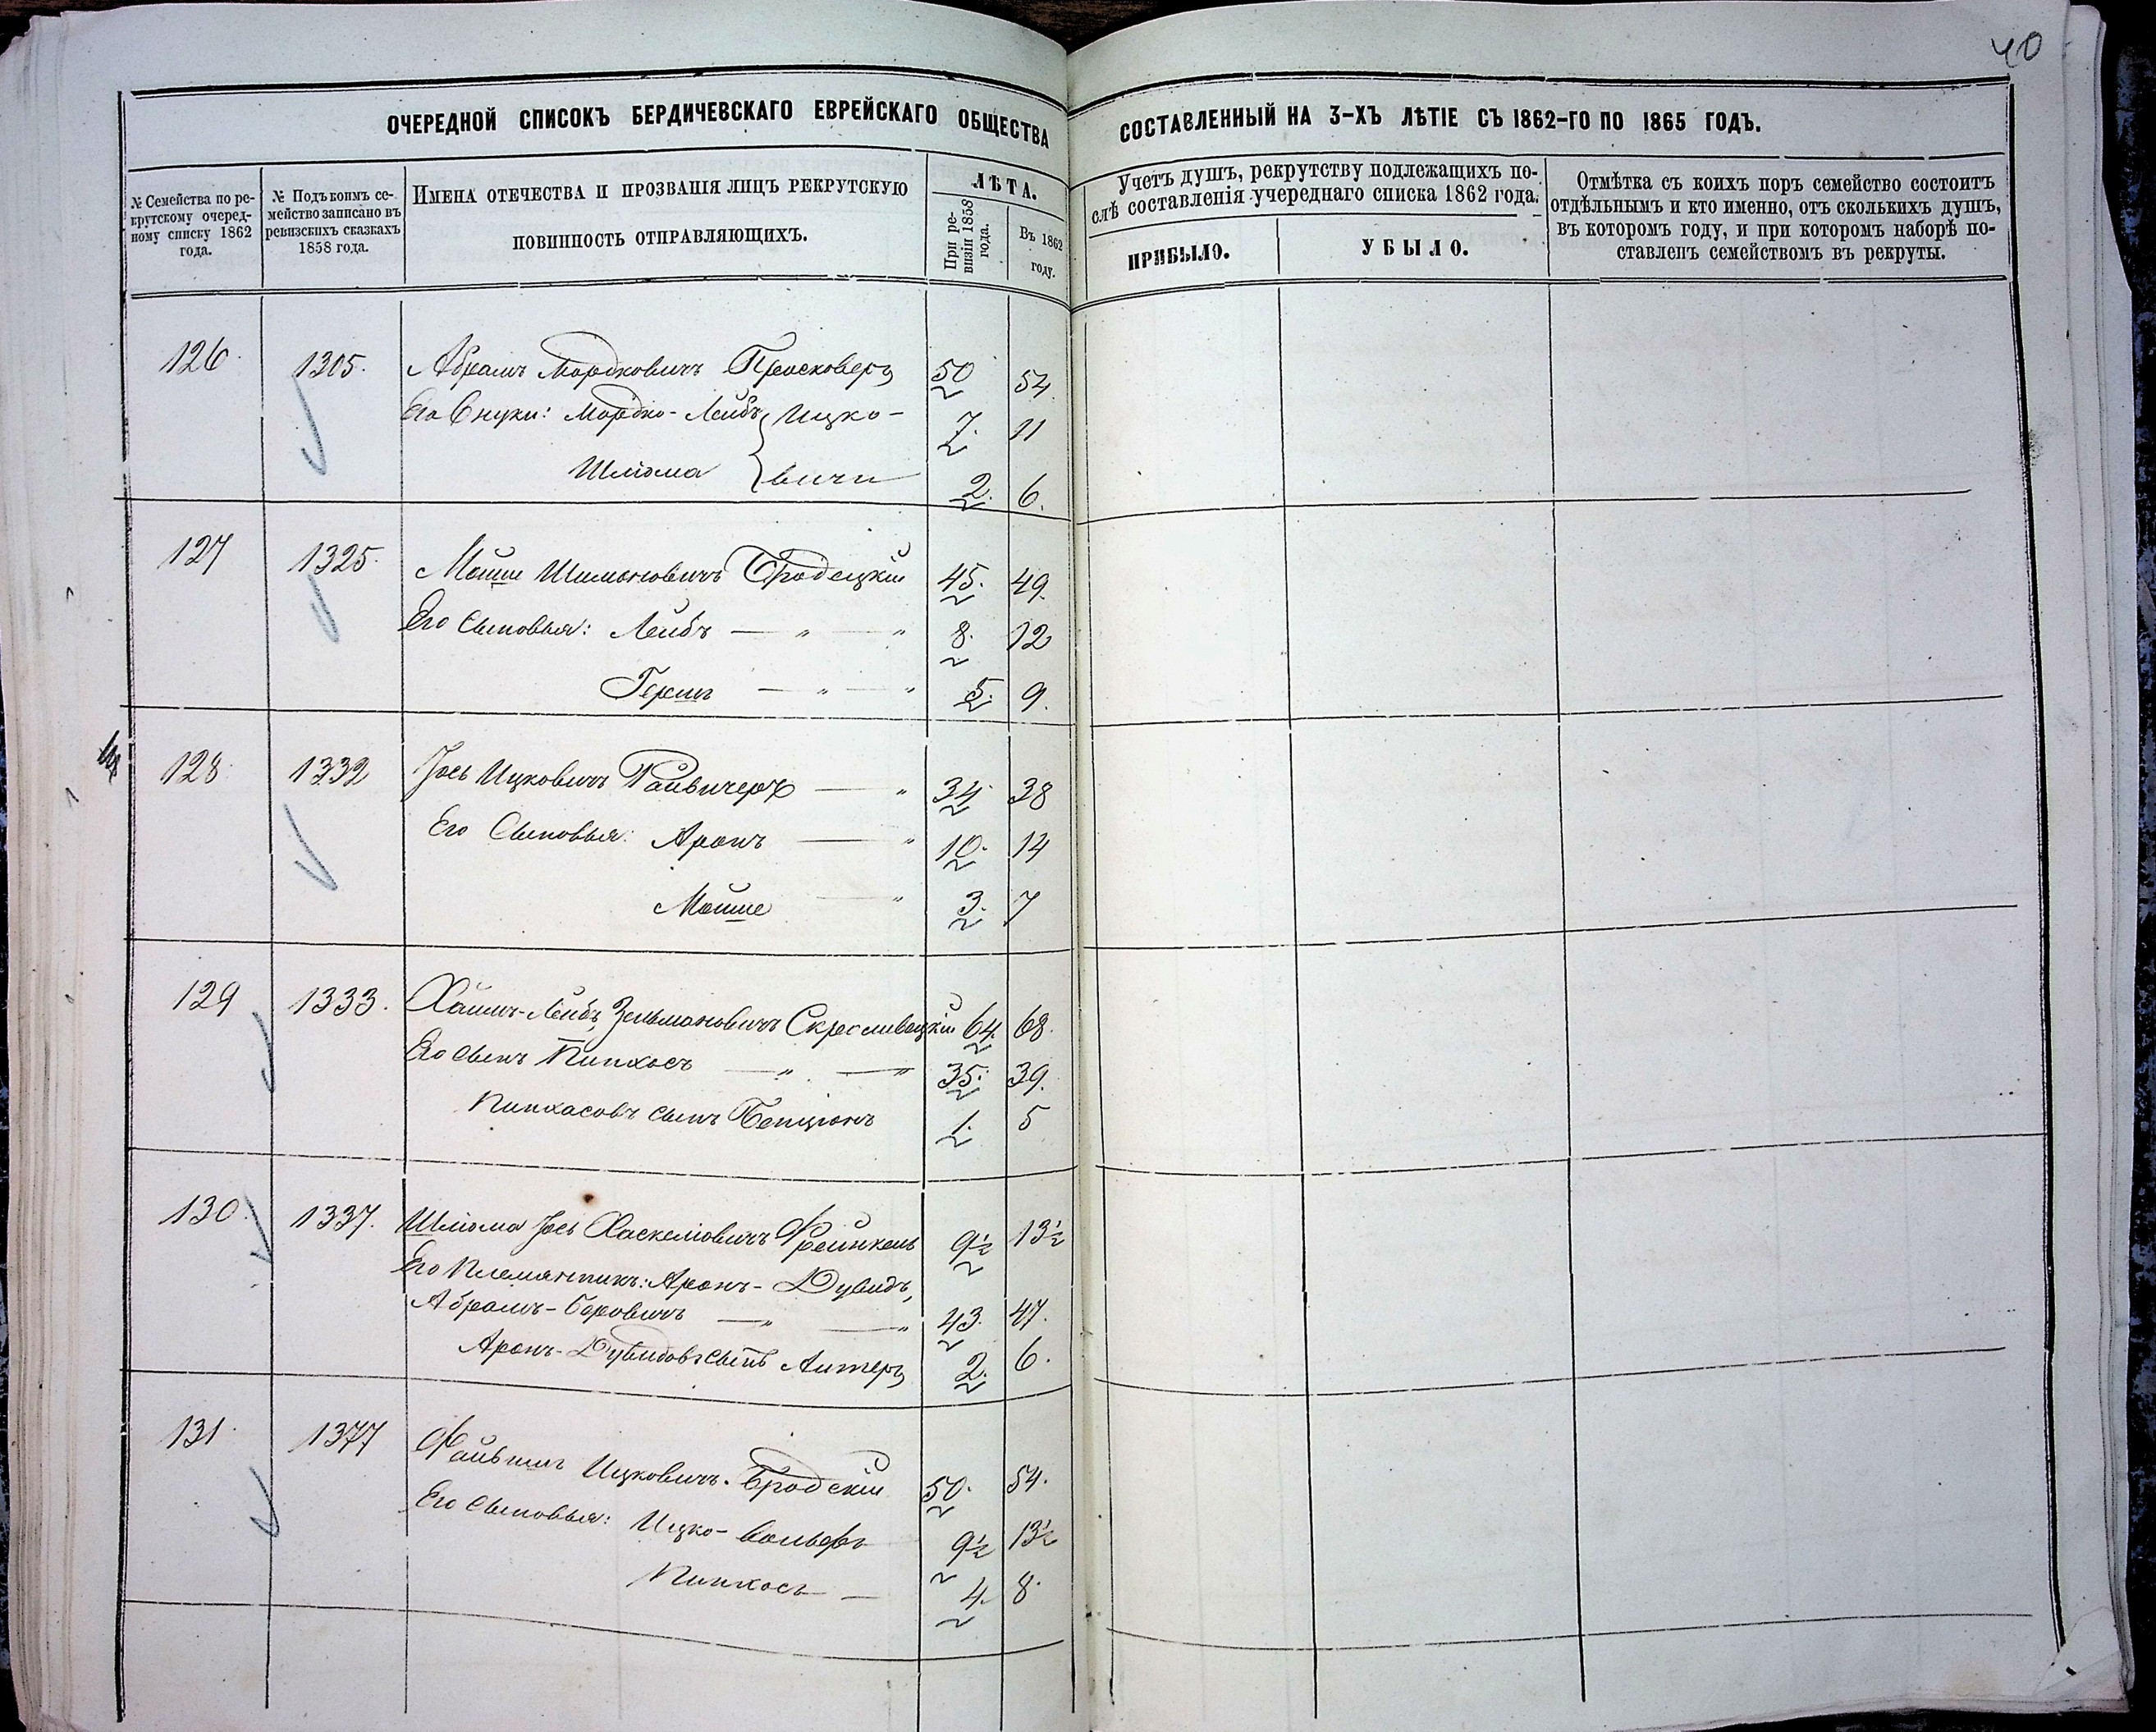 40
ОЧЕРЕДНОЙ СПИСОКЪ БЕРДИЧЕВСКАГО ЕВРЕЙСКАГО ОБЩЕСТВА СОСТАВЛЕННЫЙ НА 3-ХЪ ЛѢТІЕ СЪ 1862-ГО ПО 1865 ГОДЪ.
№ Семейства по ре-
крутскому очеред-
ному списку 1862
года.
№ Подъ коимъ се-
мейство записано въ
ревизскихъ сказкахъ
1858 года.
ИМЕНА ОТЕЧЕСТВА И ПРОЗВАНІЯ ЛИЦЪ РЕКРУТСКУЮ
ПОВИННОСТЬ ОТПРАВЛЯЮЩИХЪ.
ЛѢТА.
При ре-
визіи 1858
года.
Въ 1862
году.
Учетъ душъ, рекрутству подлежащихъ по-
слѣ составленія учереднаго списка 1862 года.
ПРИБЫЛО.
УБЫЛО.
Отмѣтка съ коихъ поръ семейство состоитъ
отдѣльнымъ и кто именно, отъ сколькихъ душъ,
въ которомъ году, и при которомъ наборѣ по-
ставленъ семействомъ въ рекруты.
126. 1305. Абрамъ Мордковичъ Просковеръ 50 54
Его Внуки: Мордко-Лейбъ } Ицко- 7. 11
Шлiома } вичи 2. 6.
127 1325. Мойше Шимоновичъ Бродецкій 45. 49.
Его Сыновья: Лейбъ — " — " 8. 12
Гершъ — " — " 5. 9.
128 1332 Іось Ицковичъ Райвичеръ — " 34. 38
Его Сыновья: Аронъ — " 10. 14
Мойше — " 3. 7
129 1333. Хаимъ-Лейбъ Зельмановичъ Скресливецкій 64. 68.
Его сынъ Пинхосъ — " — " 35. 39.
Пинхасовъ сынъ Бенціонъ 1. 5
130. 1337. Шліома Іось Хаскеліовичъ Френкель 9½ 13½
Его Племянникъ: Аронъ-Дувидъ,
Абрамъ-Беровичъ — " — " 43. 47.
Аронъ-Дувидовъ сынъ Алтеръ 2. 6.
131. 1377 Файвишъ Ицковичъ Бродскій 50. 54.
Его Сыновья: Ицко-Вольфъ 9½ 13½
Пинхосъ — 4. 8.